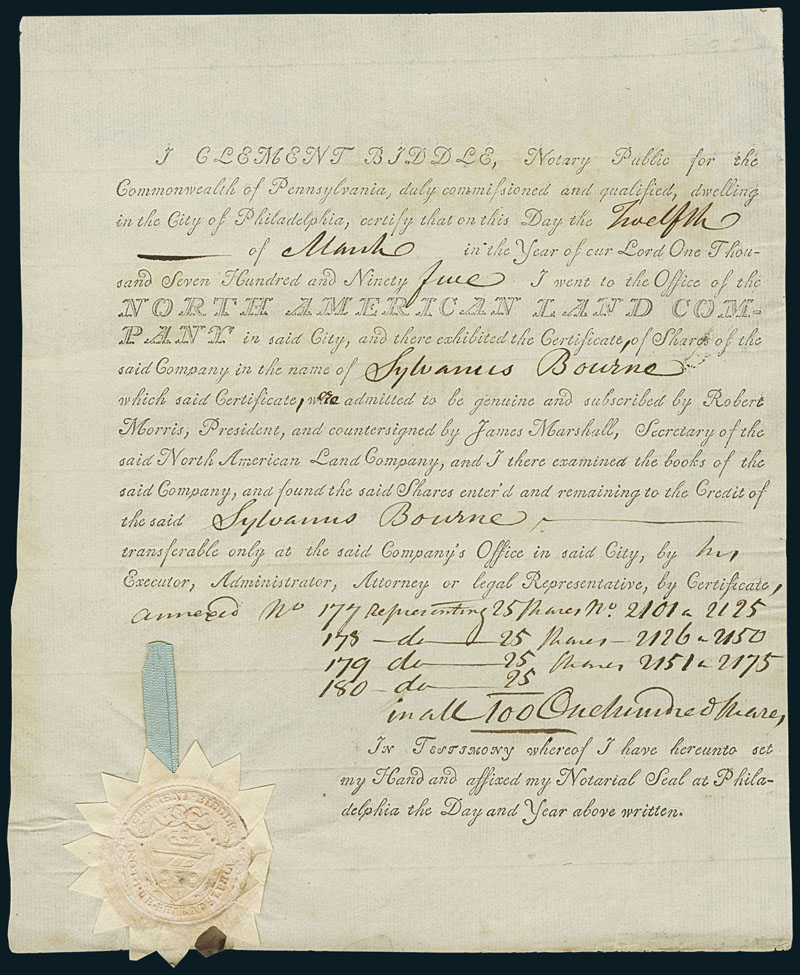 I CLEMENT BIDDLE, Notary Public for the
Commonwealth of Pennsylvania, duly commissioned and qualified, dwelling
in the City of Philadelphia, certify that on this Day the Twelfth
of March in the Year of our Lord One Thou-
sand Seven Hundred and Ninety five I went to the Office of the
NORTH AMERICAN LAND COM-
PANY in said City, and there exhibited the Certificates of Shares of the
said Company in the name of Sylvanus Bourne
which said Certificates were admitted to be genuine and subscribed by Robert
Morris, President, and countersigned by James Marshall, Secretary of the
said North American Land Company, and I there examined the books of the
said Company, and found the said Shares enter'd and remaining to the Credit of
the said Sylvanus Bourne
transferable only at the said Company's Office in said City, by his
Executor, Administrator, Attorney or legal Representative, by Certificates
annexed No 177 Representing 25 Shares No. 2101 a 2125
178 - do - 25 Shares - 2126 a 2150
179 do - 25 Shares 2151 a 2175
180 - do - 25
in all 100 One hundred Shares
IN TESTIMONY whereof I have hereunto set
my Hand and affixed my Notarial Seal at Phila-
delphia the Day and Year above written.
CLEMENT BIDDLE